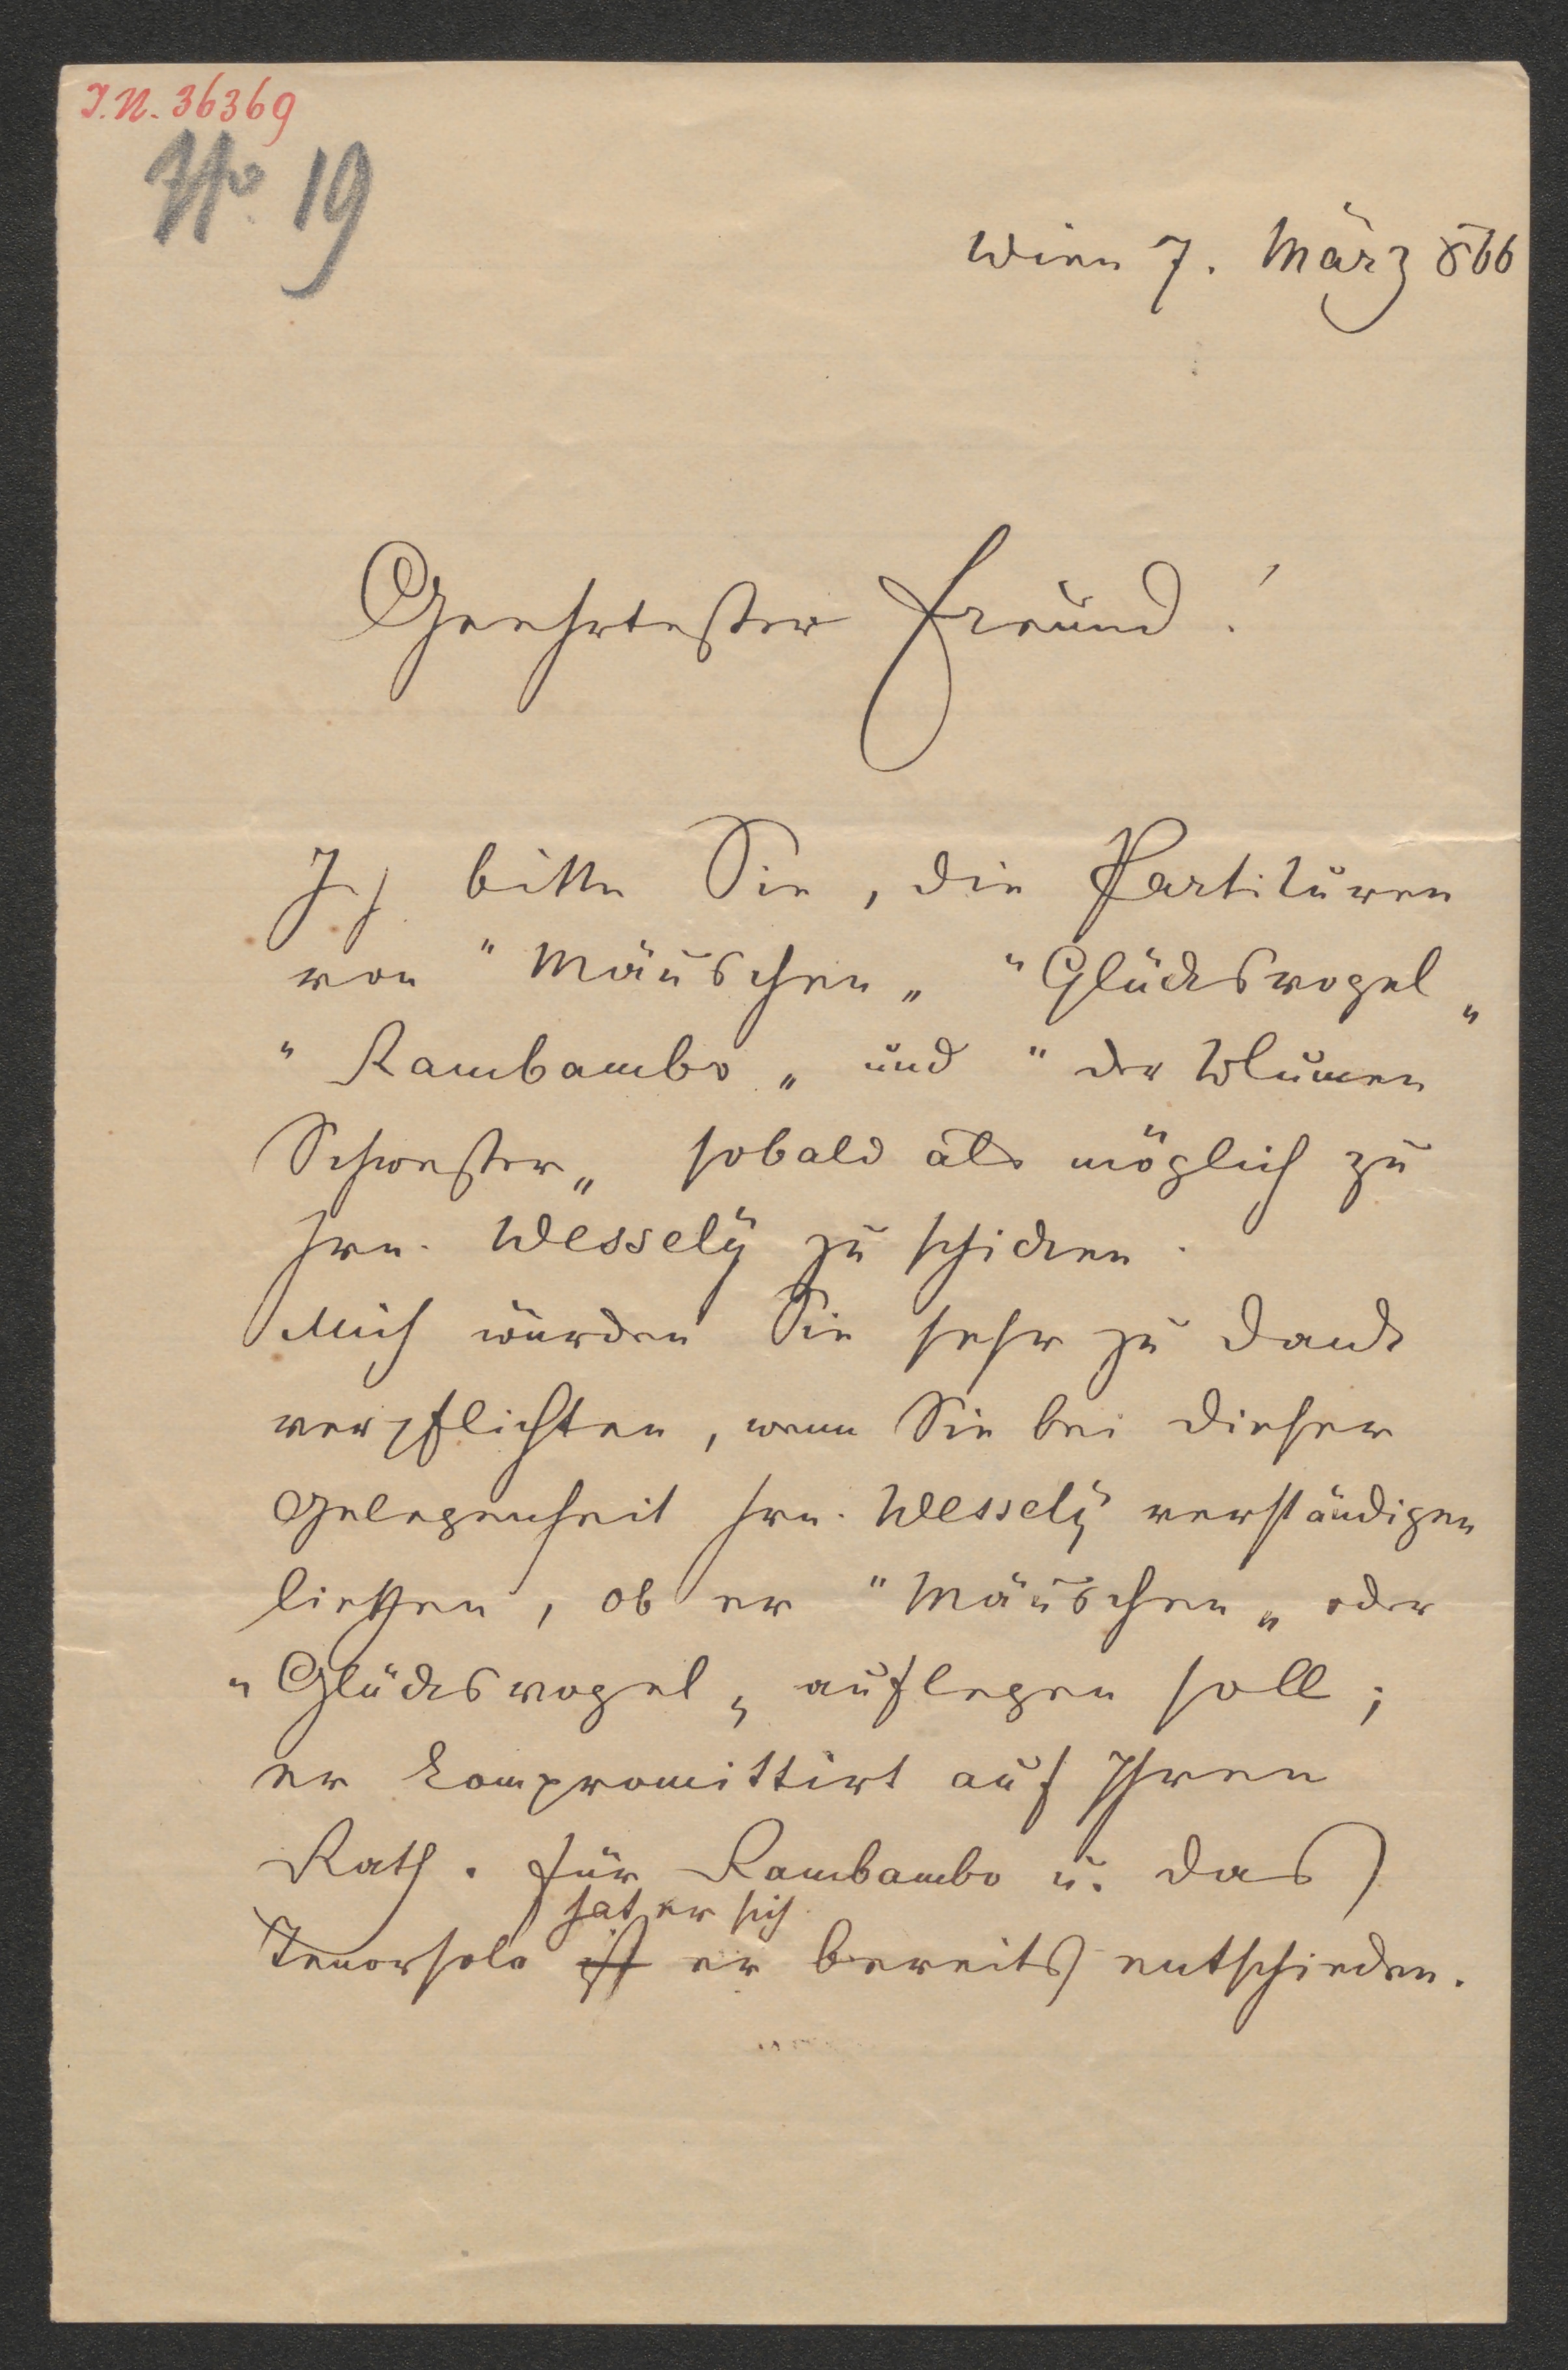 I.N. 36369
No. 19
Wien 7. März 866
Geehrtester Freund!
Ich bitte Sie, die Partituren
von "Mäuschen„ "Glücksvogel„
"Rambambo„ und "der Blumen
Schwester„ sobald als möglich zu
Hrn. Wessely zu schicken.
Mich würden Sie sehr zu Dank
verpflichten, wenn Sie bei dieser
Gelegenheit Hrn. Wessely verständigen
ließen, ob er "Mäuschen„ oder
"Glücksvogel„ auflegen soll;
er kompromittirt auf Ihren
Rath. Für Rambambo u. das
hat er sich
Tenorsolo ist er bereits entschieden.